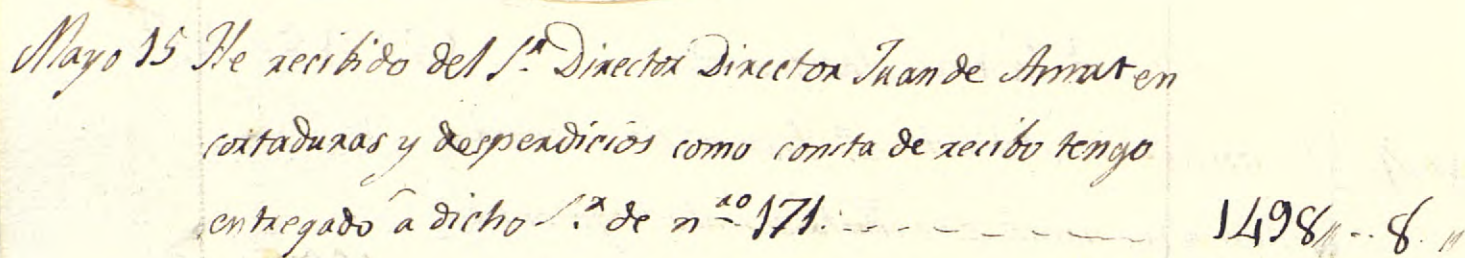 Mayo 15 He recibido del S.r Director Director Juan de Amat en
cortaduras y desperdicios como consta de recibo tengo
entregado â dicho S.r de n.ro 171. 1498,, -- 8. ,,